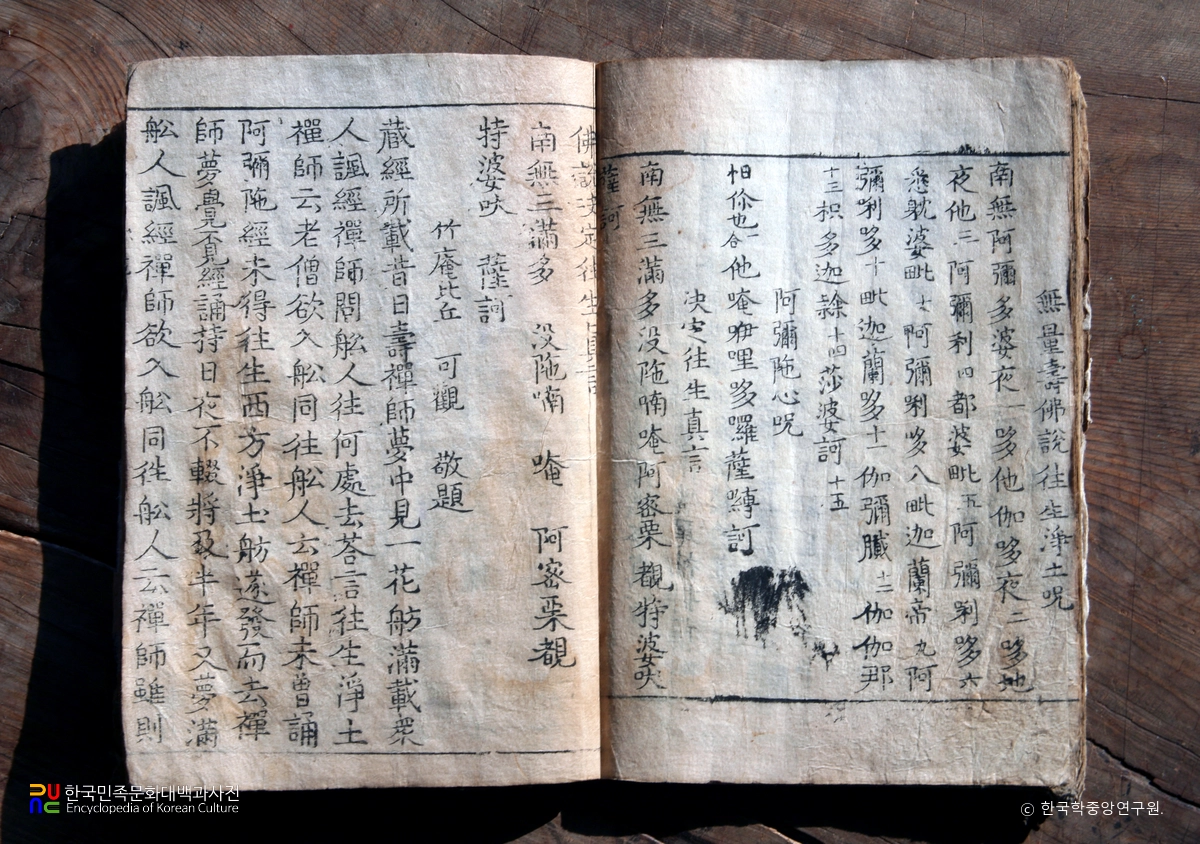 無量壽佛說往生淨土呪
南無阿彌多婆夜一哆他伽哆夜二哆地
夜他三阿彌利四都婆毗五阿彌唎哆六
悉躭婆毗七阿彌唎哆八毗迦蘭帝九阿
彌唎哆十毗迦蘭哆十一伽彌膩十二伽伽那
十三枳多迦隷十四莎婆訶十五
阿彌陁心呪
他唵哆囉薩訶
决定往生真言
南無三滿多没陁喃唵阿密栗覩特婆吠
薩訶
佛說決定往生真言
南無三滿多 没陁喃 唵 阿密栗覩
特婆吠 薩訶
竹庵比丘 可觀 敬題
蔵經所載昔日壽禪師夢中見一花舫滿載衆
人諷經禪師問舩人往何處去荅言往生淨土
禪師云老僧欲入舩同往舩人云禪師未曽誦
阿彌陁經未得往生西方淨土舫遂發而去禪
師夢覺覓經誦持日夜不輟將及半年又夢滿
舩人諷經禪師欲入舩同徃舩人云禪師雖則
한국민족문화대백과사전
Encyclopedia of Korean Culture
© 한국학중앙연구원.